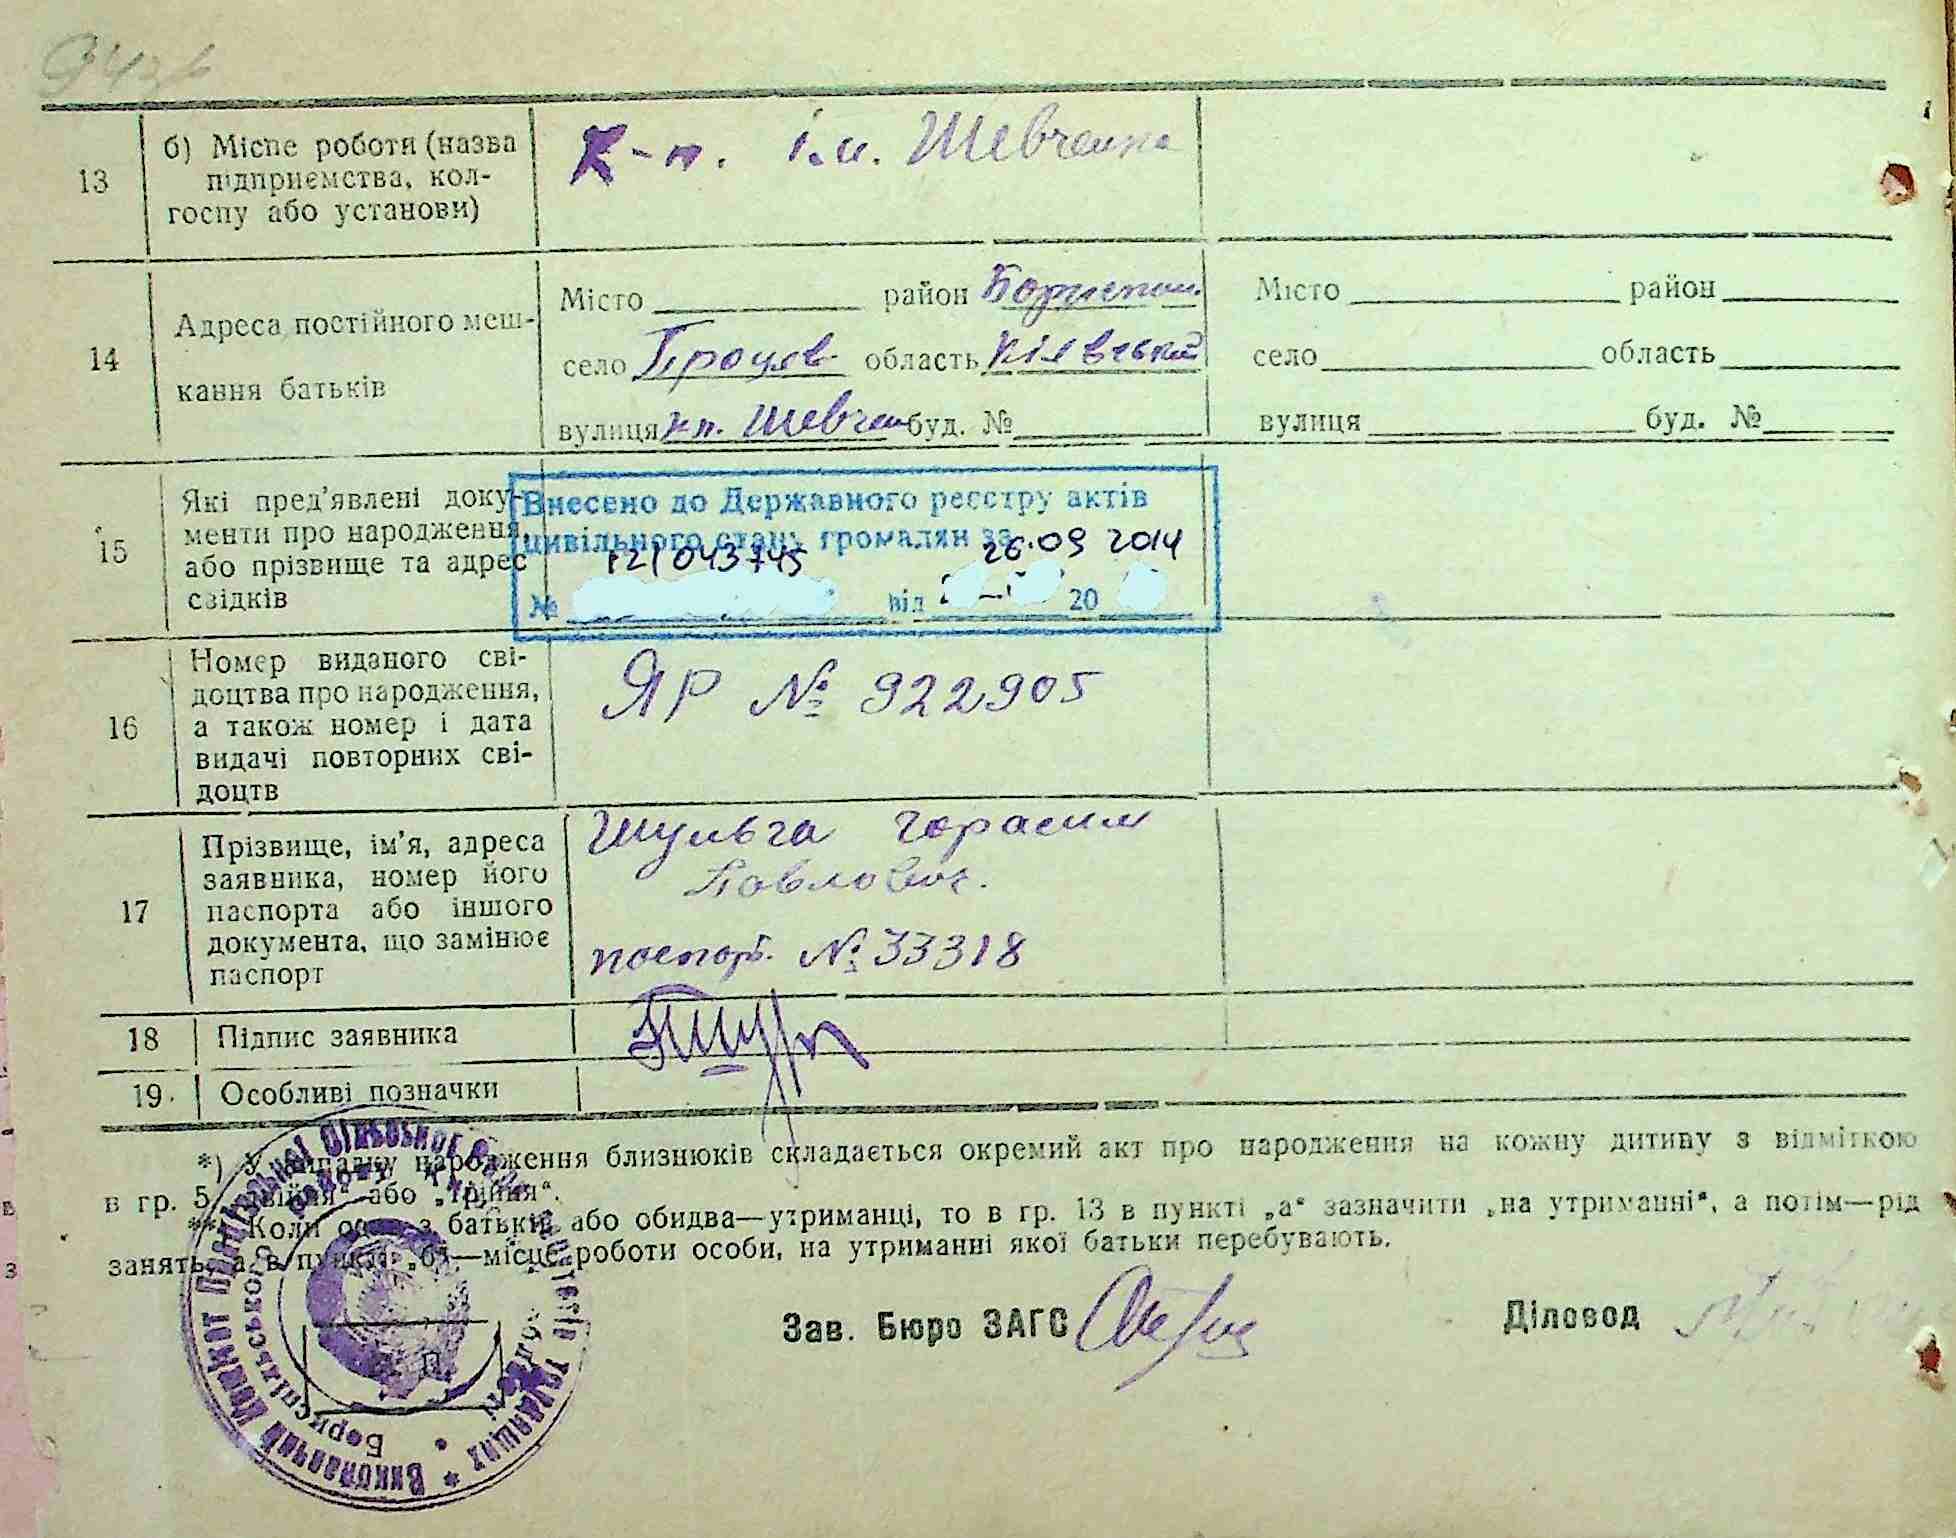 13 б) Місце роботи (назва підприємства, кол-
госпу або установи)
К-п. ім. Шевченка
14 Адреса постійного меш-
кання батьків
Місто район Бориспол.
село Процев область Київській
вулиця кп. Шевчен буд. №
Місто район
село область
вулиця буд. №
15 Які пред'явлені доку-
менти про народження,
або прізвище та адрес
свідків
Внесено до Державного реєстру актів
цивільного стану громадян за
121043745 26.09 2014
№ від 20
16 Номер виданого сві-
доцтва про народження,
а також номер і дата
видачі повторних сві-
доцтв
ЯР № 922905
17 Прізвище, ім'я, адреса
заявника, номер його
паспорта або іншого
документа, що замінює
паспорт
Шульга Горасим
Павлович.
паспорт. № 33318
18 Підпис заявника
19 Особливі позначки
*) У випадку народження близнюків складається окремий акт про народження на кожну дитину з відміткою
в гр. 5 „двійня“ або „трійня“.
**) Коли один з батьків або обидва—утриманці, то в гр. 13 в пункті „а“ зазначити „на утриманні“, а потім—рід
занять, а в пункті „б“—місце роботи особи, на утриманні якої батьки перебувають.
Зав. Бюро ЗАГС
Діловод
Виконавчий Комітет Процівської Сільської Ради депутатів трудящих
Бориспільського району